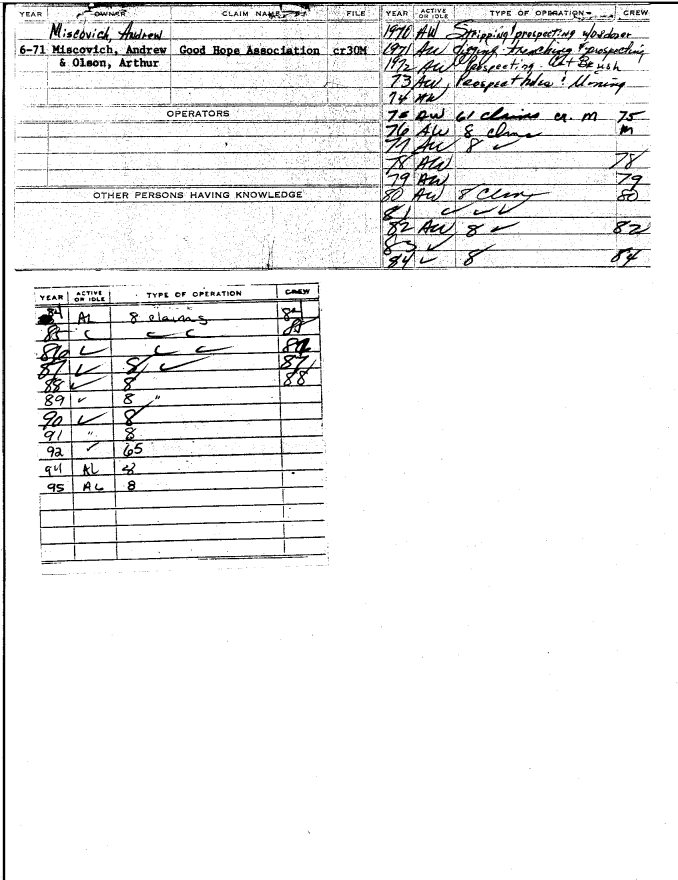 YEAR OWNER CLAIM NAME FILE
Miscovich, Andrew
6-71 Miscovich, Andrew Good Hope Association cr30M
& Olson, Arthur
OPERATORS
OTHER PERSONS HAVING KNOWLEDGE
YEAR ACTIVE OR IDLE TYPE OF OPERATION CREW
1970 AW Stripping prospecting w/dozer
1971 AW trenching & prospecting
1972 AW Prospecting Cut Brush
73 AW Prospect holes & Mining
74 AW
75 AW 61 claims cr. m 75
76 AW 8 claims m
77 AW 8 ✓
78 AW 78
79 AW 79
80 AW 8 Claims 80
81 ✓ ✓ ✓
82 AW 8 ✓ 82
83 ✓
84 ✓ 8 84
YEAR ACTIVE OR IDLE TYPE OF OPERATION CREW
84 AL 8 claims 84
85 ✓ ✓ ✓ 85
86 ✓ ✓ ✓ 86
87 ✓ 8 ✓ 87
88 ✓ 8 88
89 ✓ 8 "
90 ✓ 8
91 " 8
92 ✓ 65
94 AL 8
95 AL 8